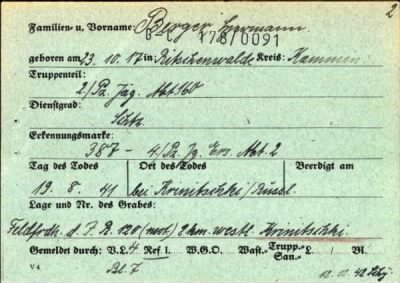 2
Familien- u. Vorname: Berger Hermann
178/0091
geboren am 23.10.17 in Kreis: Kammin
Truppenteil:
2./Pz. Jäg. Abt. 160
Dienstgrad:
Schtz.
Erkennungsmarke:
387 - 4./Pz. Jg. Ers. Abt. 2
Tag des Todes Ort des Todes Beerdigt am
19.8.41 bei Kornitschki/Russl.
Lage und Nr. des Grabes:
Feldfrdh. d. J. R. 120 (mot.) 2 km westl. Kornitschki.
Gemeldet durch: V.L. 4 Ref. I. W.G.O. Wast.- Trupp.- San.- L. Bl.
V 4 Bl. 7 12.12.42